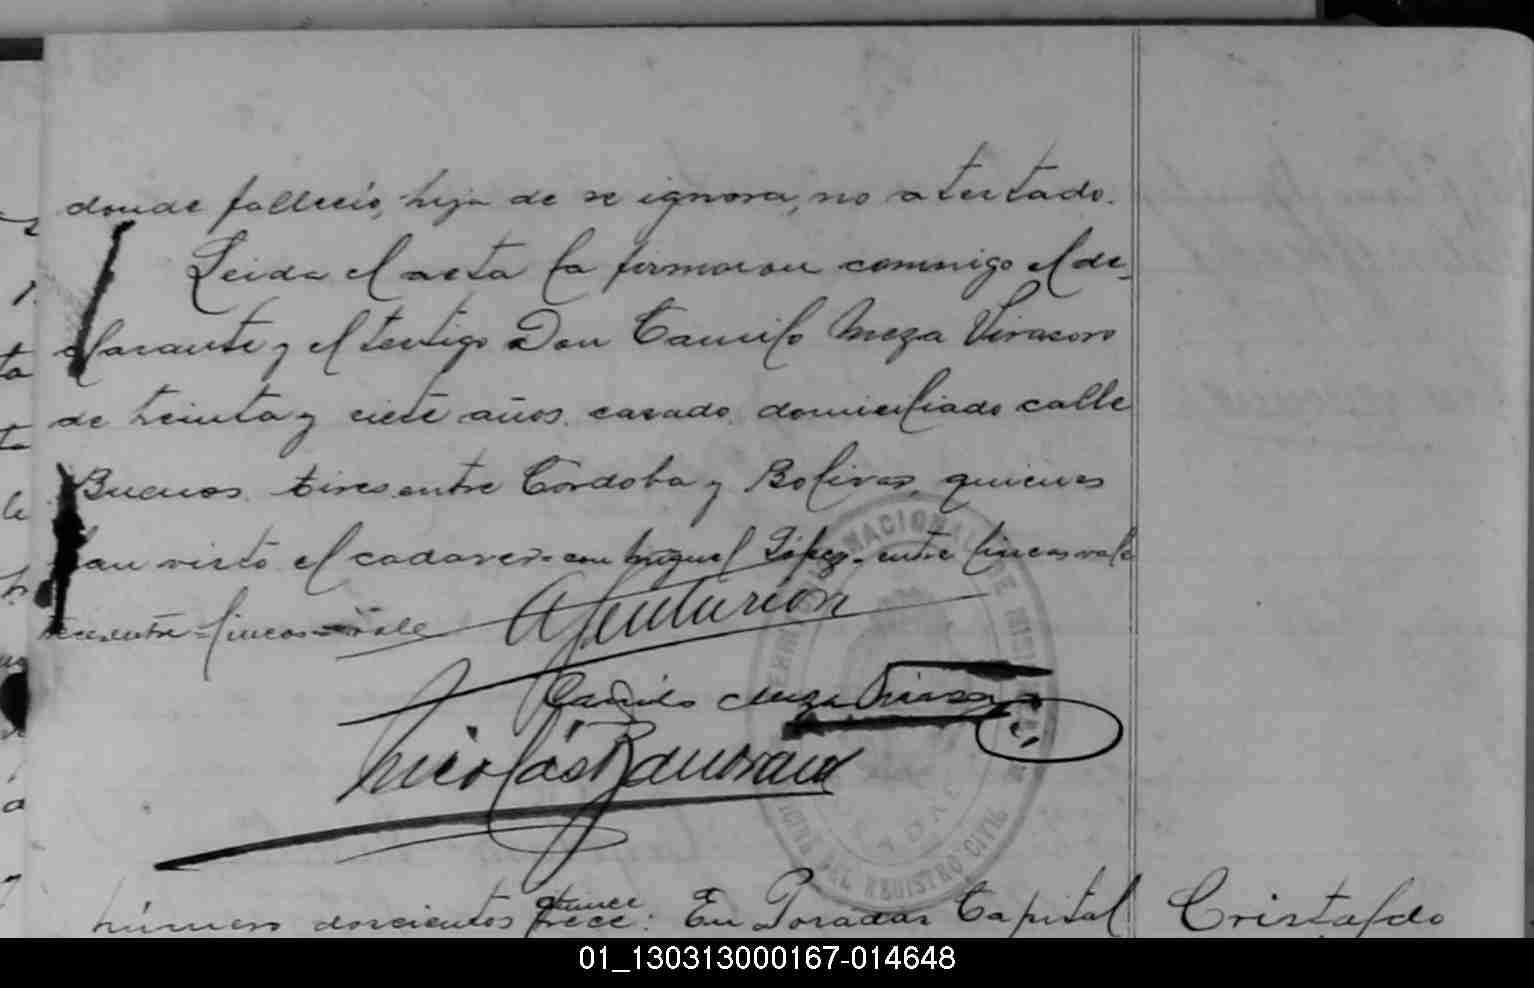 donde falleció, hija de se ignora, no atestado.
Leida el acta la firmaron conmigo el de-
clarante y el testigo Don Camilo Meza Virasoro
de treinta y siete años, casado, domiciliado calle
Buenos Aires entre Córdoba y Bolivar, quienes
han visto el cadaver - con Miguel López - entre lineas vale
entre lineas - vale
Camilo Meza Virasoro
Nicolás
NACIONAL DE MISIONES
OFICINA DEL REGISTRO CIVIL
POSADAS
quince
Número doscientos trece: En Posadas Capital
Cristaldo
01_130313000167-014648